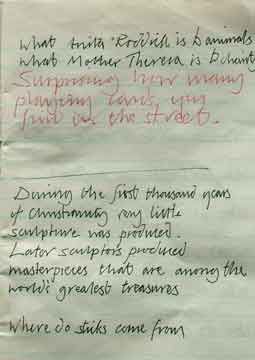 What Anita Roddick is to animals
What Mother Theresa is to charity
Surprising how many
playing cards you
find in the street.
During the first thousand years
of Christianity very little
sculpture was produced.
Later sculptors produced
masterpieces that are among the
world's greatest treasures
Where do sticks come from